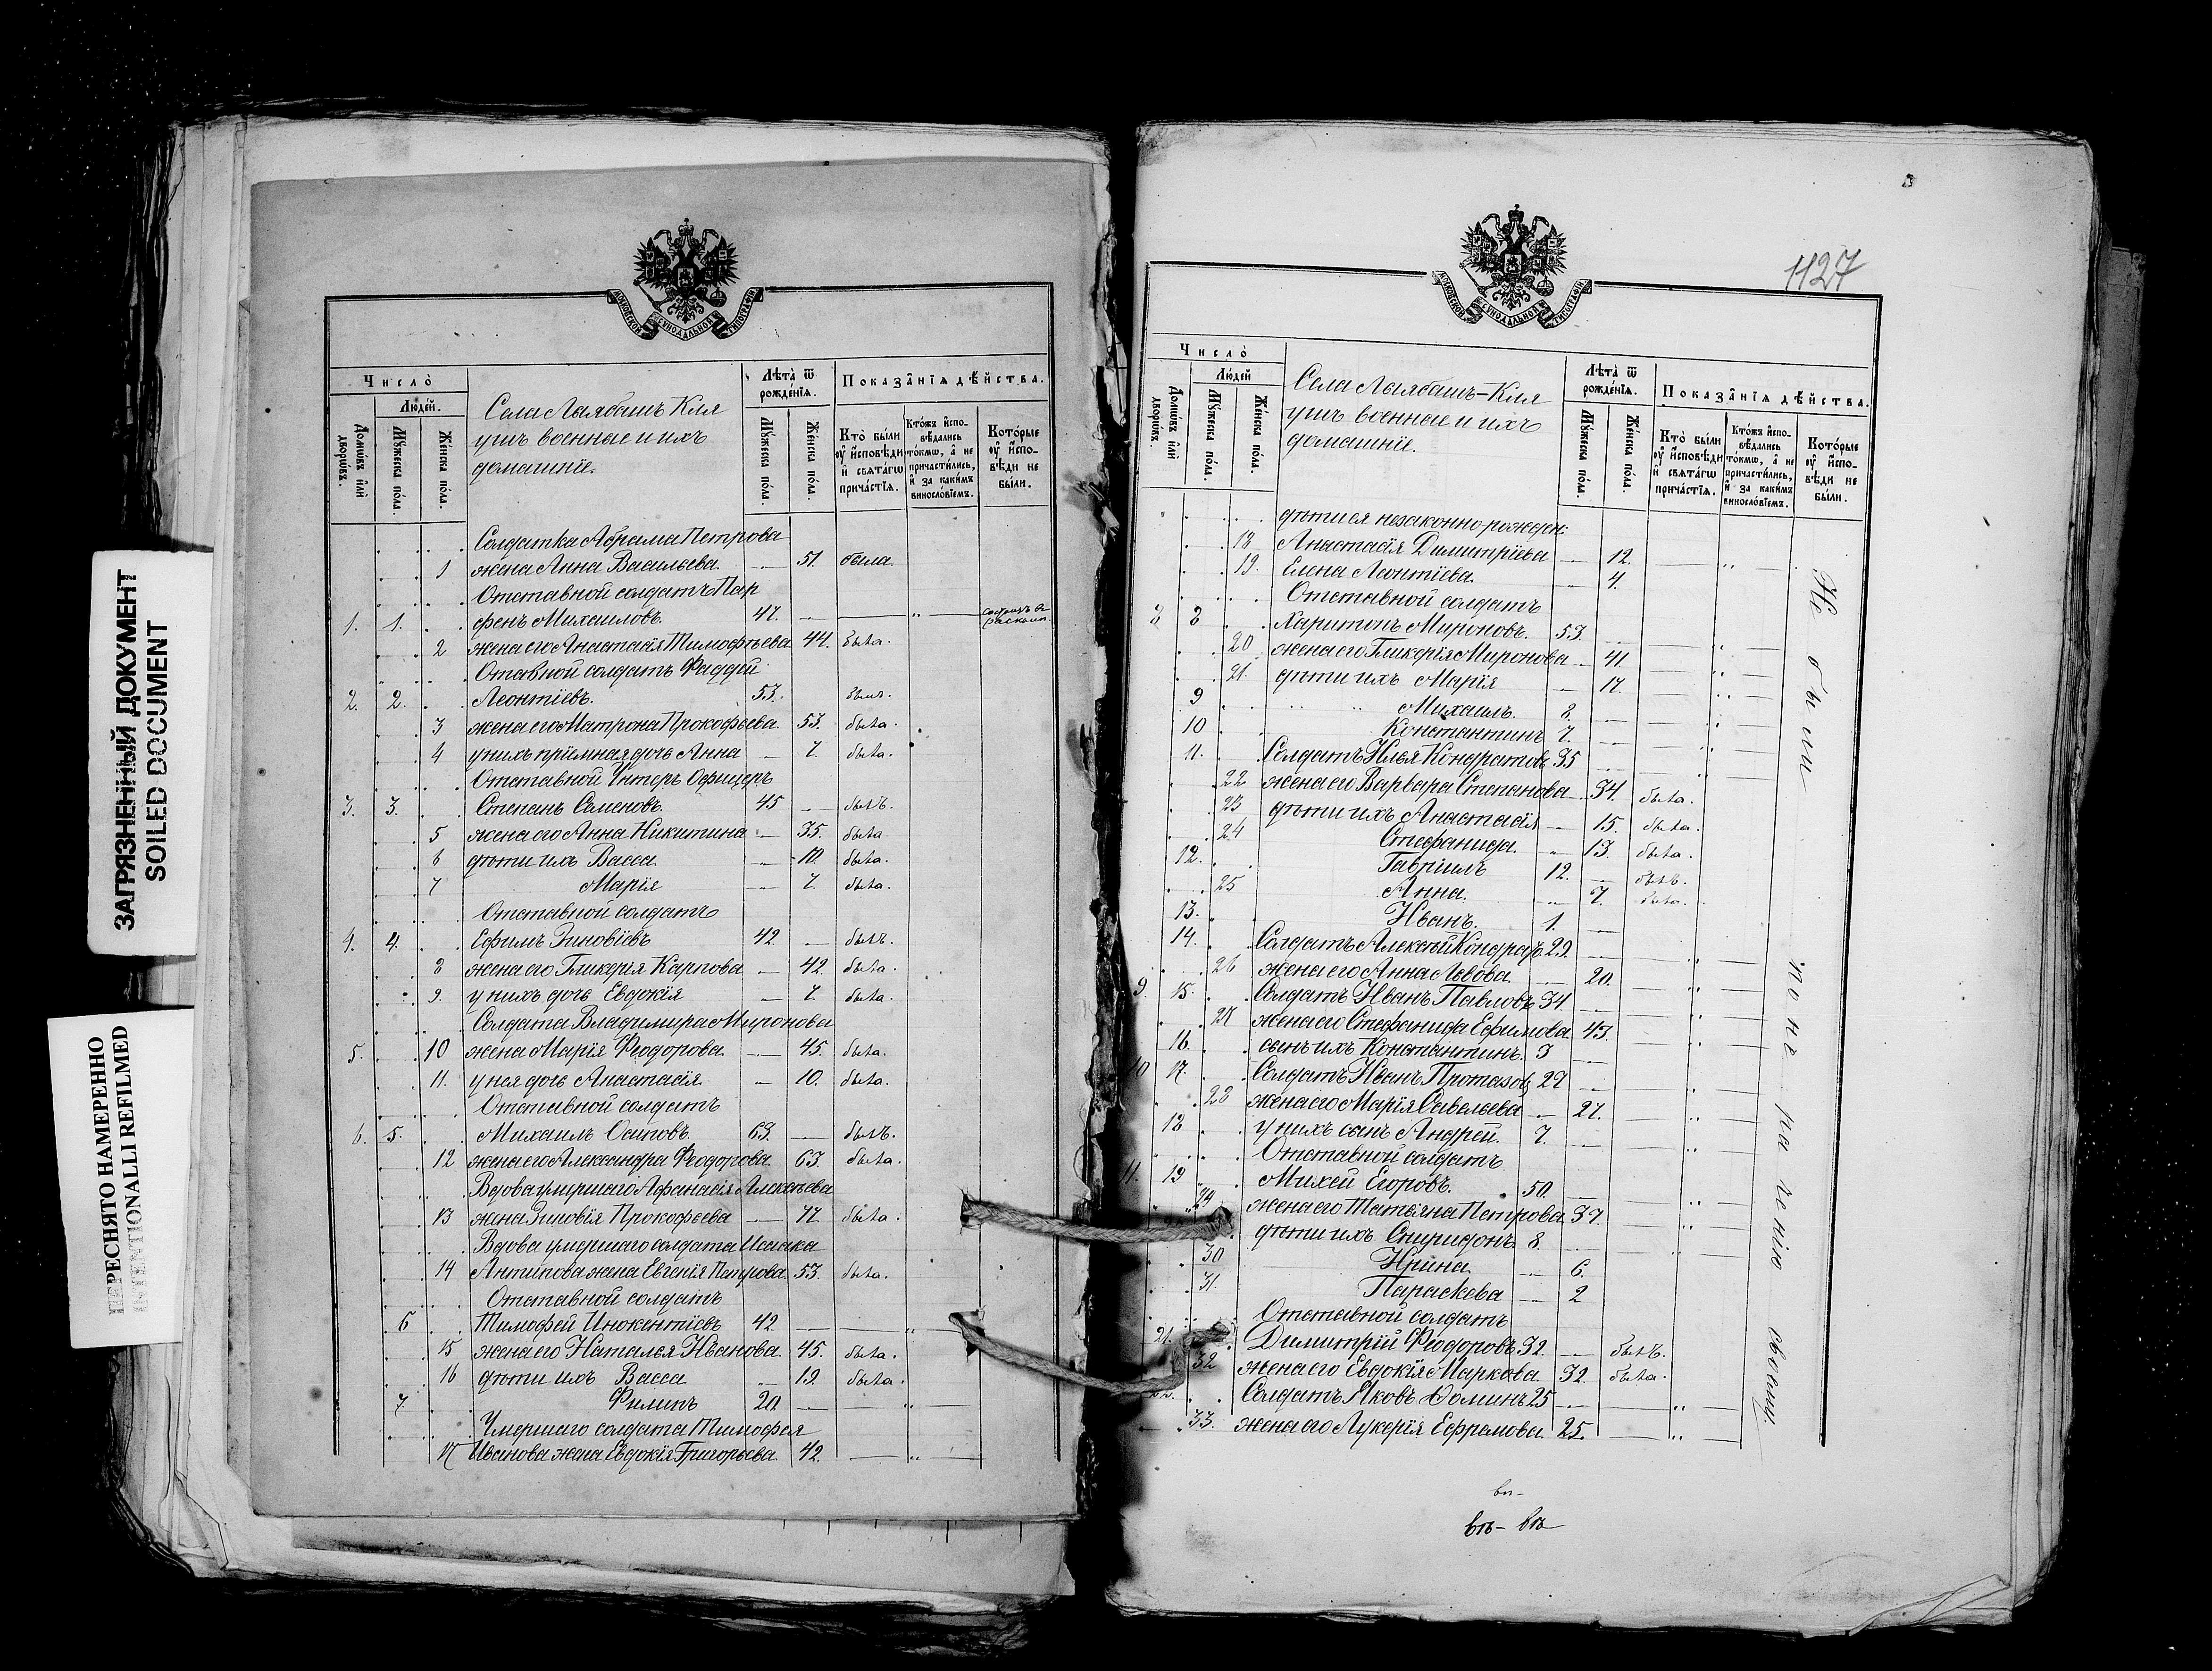 ЗАГРЯЗНЕННЫЙ ДОКУМЕНТ
SOILED DOCUMENT
ПЕРЕСНЯТО НАМЕРЕННО
INTENTIONALLI REFILMED
МОСКОВСКОЙ СѴНОДАЛЬНОЙ ТИПОГРАФІИ
Число̀
Людей.
Домѡвъ и҆лѝ дворѡвъ.
Мꙋ́жеска по́ла.
Же́нска по́ла.
Села Лыябашъ Кля
ушъ военные и ихъ
домашніе.
Лѣта̀ ѿ рожде́нїѧ.
Мꙋ́жеска по́ла.
Же́нска по́ла.
Показа̑нїѧ дѣ́йства.
Кто̀ бы́ли ᲂу҆ и҆сповѣ́ди и҆ свѧта́гѡ прича́стїѧ.
Кто́жъ и҆спо-
вѣ́дались то́кмѡ, а҆ не причасти́лись, и҆ за каки́мъ винослові́емъ.
Кото́рые ᲂу҆ и҆спо-
вѣ́ди не бы́ли.
Солдатка Абрама Петрова
1 жена Анна Васильева. — 51. была.
Отставной солдатъ Пар
1. 1. фенъ Михаиловъ. 47. — — „ —
2 жена его Анастасія Тимофѣева 44. была.
Отавной солдатъ Фаддей
2. 2. Леонтіевъ. 53. былъ.
3 жена его Матрона Прокофьева. 53. была.
4 у нихъ пріемная дочь Анна — 7. была.
Отставной Унтеръ Офицеръ
3. 3. Степанъ Семеновъ. 45 — былъ.
5 жена его Анна Никитина — 35. была
6 дѣти ихъ Васса. — 10. была.
7 Марія — 7. была.
Отставной солдатъ
4. 4. Ефимъ Зиновіевъ 42. — былъ.
8 жена его Гликерія Карпова — 42. была.
9. у нихъ дочь Евдокія — 7. была.
Солдата Владимира Миронова
5. 10 жена Марія Феодорова. — 45. была.
11. у нея дочь Анастасія. — 10. была.
Отставной солдатъ
6. 5. Михаилъ Осиповъ. 63. — былъ.
12 жена его Александра Феодорова. 63. была.
Вдова умершаго Афанасія Алексѣева
13 жена Зиновія Прокофьева — 77. была.
Вдова умершаго солдата Исаака
14 Антипова жена Евгенія Петрова. 53. была.
Отставной солдатъ
6 Тимофей Инокентіевъ 42. — — „ —
15 жена его Наталья Иванова. 45. была.
16 дѣти ихъ Васса — 19. была.
7. Филипъ 20. — — „ —
Умершаго солдата Тимофея
17 Иванова жена Евдокія Григорьева. 42. — „ —
1127
МОСКОВСКОЙ СѴНОДАЛЬНОЙ ТИПОГРАФІИ
Число̀
Люде́й
Домѡвъ и҆лѝ дворѡвъ.
Мꙋ́жеска по́ла.
Же́нска по́ла.
Села Лыябашъ-Кля
ушъ военные и ихъ
домашніе.
Лѣта̀ ѿ рожде́нїѧ.
Мꙋ́жеска по́ла.
Же́нска по́ла.
Показа̑нїѧ дѣ́йства.
Кто̀ бы́ли ᲂу҆ и҆сповѣ́ди и҆ свѧта́гѡ прича́стїѧ.
Кто́жъ и҆спо-
вѣ́дались то́кмѡ, а҆ не причасти́лись, и҆ за каки́мъ винослові́емъ.
Кото́рые ᲂу҆ и҆спо-
вѣ́ди не бы́ли.
дѣти ея незаконно-рожден:
18 Анастасія Димитріева — 12. — „ —
19. Елена Леонтіева. — 4.
Отставной солдатъ
8 8 Харитонъ Мироновъ. 53. —
20 жена его Гликерія Миронова — 41. — „ —
21. дѣти ихъ Марія — 17. — „ —
9 „ „ Михаилъ. 8. — — „ —
10 Константинъ 7. — — „ —
11. Солдатъ Илья Кондратовъ 35 — — „ —
22 жена его Варвара Степанова. 34. была.
23 дѣти ихъ Анастасія — 15. была.
24 Стефанида. — 13. была.
12. Гавріилъ 12. — былъ.
25 Анна. — 7. была.
13. Иванъ. 1. —
14. Солдатъ Алексѣй Кондрат. 29. — — „ —
26 жена его Анна Львова. — 20. — „ —
9. 15. Солдатъ Иванъ Павловъ 34. — — „ —
27 жена его Стефанида Ефимова. 43. — „ —
16. сынъ ихъ Константинъ. 3 —
10 17. Солдатъ Иванъ Протазов. 29 — — „ —
28 жена его Марія Савельева — 27. — „ —
18 у нихъ сынъ Андрей. 7. — — „ —
Отставной солдатъ
11. 19 Михей Егоровъ. 50. — — „ —
29 жена его Татьяна Петрова 37. — „ —
дѣти ихъ Спиридонъ. 8. — — „ —
30 Ирина — 6.
31. Параскева — 2
Отставной солдатъ
21. Димитрій Феодоровъ 32. — былъ.
32 жена его Евдокія Маркова. 32. была.
22. Солдатъ Яковъ Ѳоминъ 25 — — „ —
33. жена его Лукерія Ефремова. 25. — „ —
Не были по не ра де нію своему.
вп-